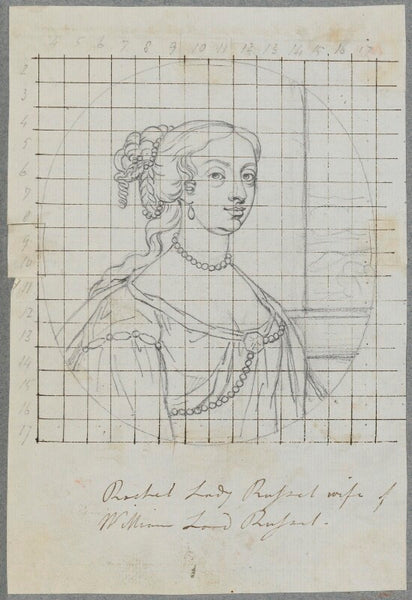 4 5 6 7 8 9 10 11 12 13 14 15 16 17
2
3
4
5
6
7
8
9
10
11
12
13
14
15
16
17
Rachel Lady Russel wife of
William Lord Russel.